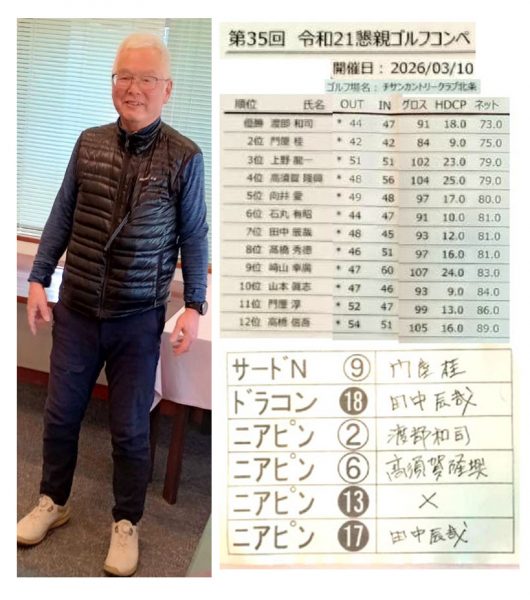 第35回 令和21懇親ゴルフコンペ
開催日：2026/03/10
ゴルフ場名：チサンカントリークラブ北条
順位 氏名 OUT IN グロス HDCP ネット
優勝 渡部 和司 * 44 47 91 18.0 73.0
2位 門屋 桂 * 42 42 84 9.0 75.0
3位 上野 龍一 * 51 51 102 23.0 79.0
4位 高須賀 隆興 * 48 56 104 25.0 79.0
5位 向井 愛 * 49 48 97 17.0 80.0
6位 石丸 有昭 * 44 47 91 10.0 81.0
7位 田中 辰哉 * 48 45 93 12.0 81.0
8位 高橋 秀徳 * 46 51 97 16.0 81.0
9位 崎山 幸廣 * 47 60 107 24.0 83.0
10位 山本 眞志 * 47 46 93 9.0 84.0
11位 門屋 淳 * 52 47 99 13.0 86.0
12位 高橋 信吾 * 54 51 105 16.0 89.0
サードN ⑨ 門屋桂
ドラコン ⓲ 田中辰哉
ニアピン ② 渡部和司
ニアピン ⑥ 高須賀隆興
ニアピン ⓭ ×
ニアピン ⓱ 田中辰哉